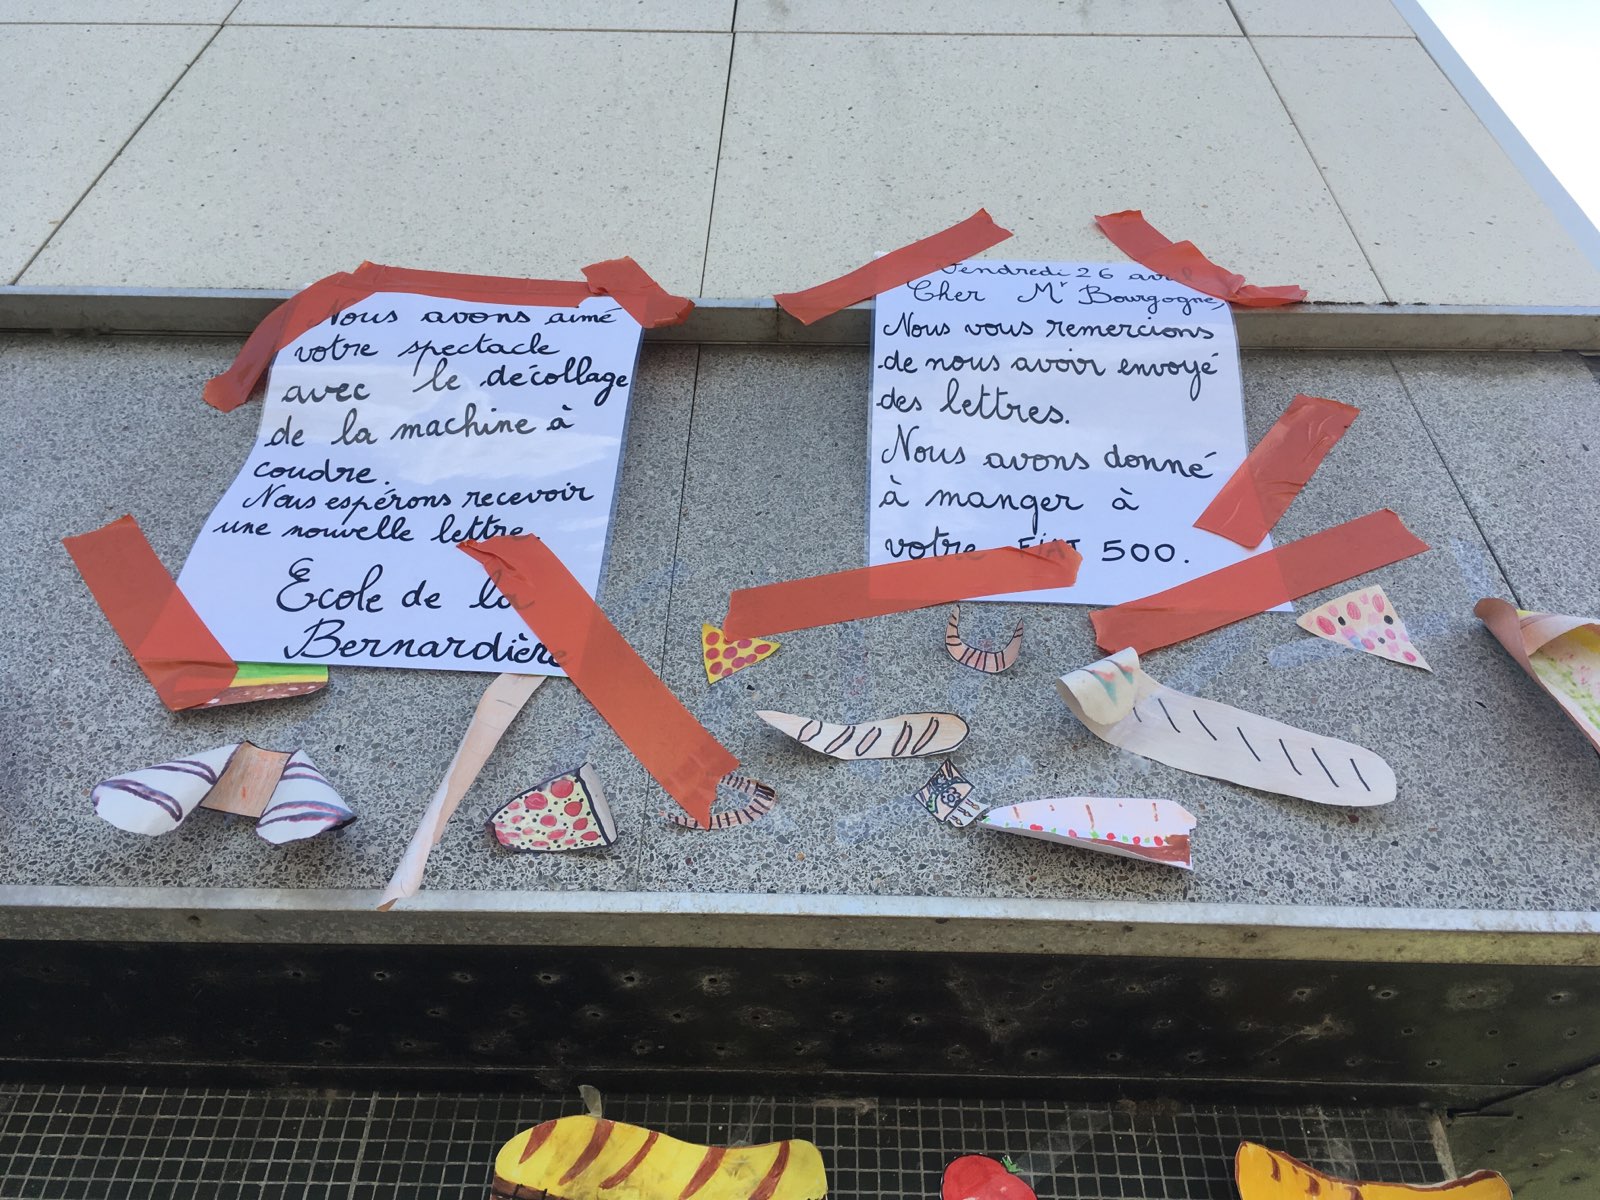 Nous avons aimé
votre spectacle
avec le décollage
de la machine à
coudre.
Nous espérons recevoir
une nouvelle lettre.
Ecole de la
Bernardière
Vendredi 26 avril
Cher Mr Bourgogne,
Nous vous remercions
de nous avoir envoyé
des lettres.
Nous avons donné
à manger à
votre FiAT 500.